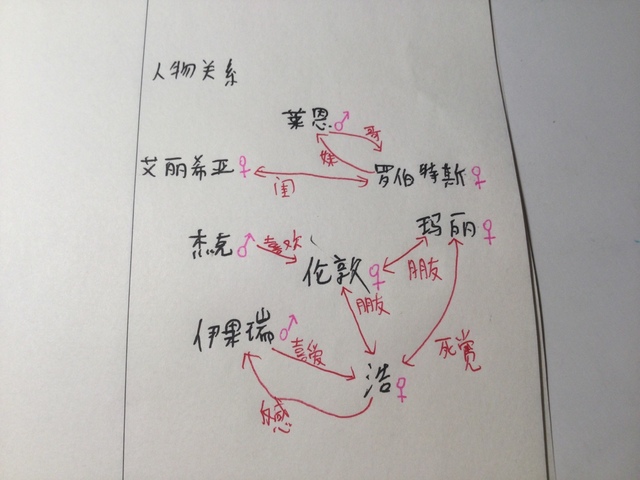 人物关系
莱恩♂
哥
妹
艾丽希亚♀
闺
罗伯特斯♀
玛丽♀
杰克♂
喜欢
伦敦♀
朋友
朋友
伊果瑞♂
喜爱
死党
浩♀
反感